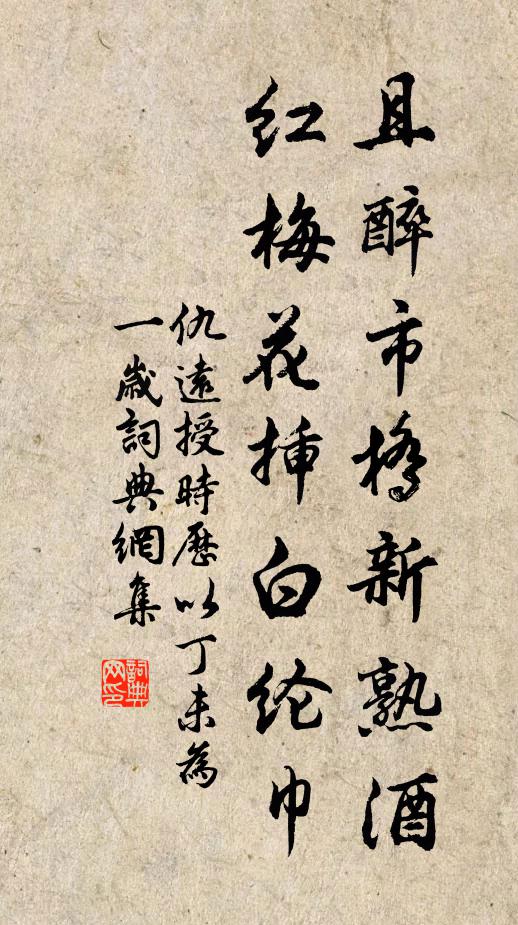 且醉市橋新熟酒
紅梅花插白纶巾
仇遠授時歷以丁未為
一歲詞典網集
詞典
网印